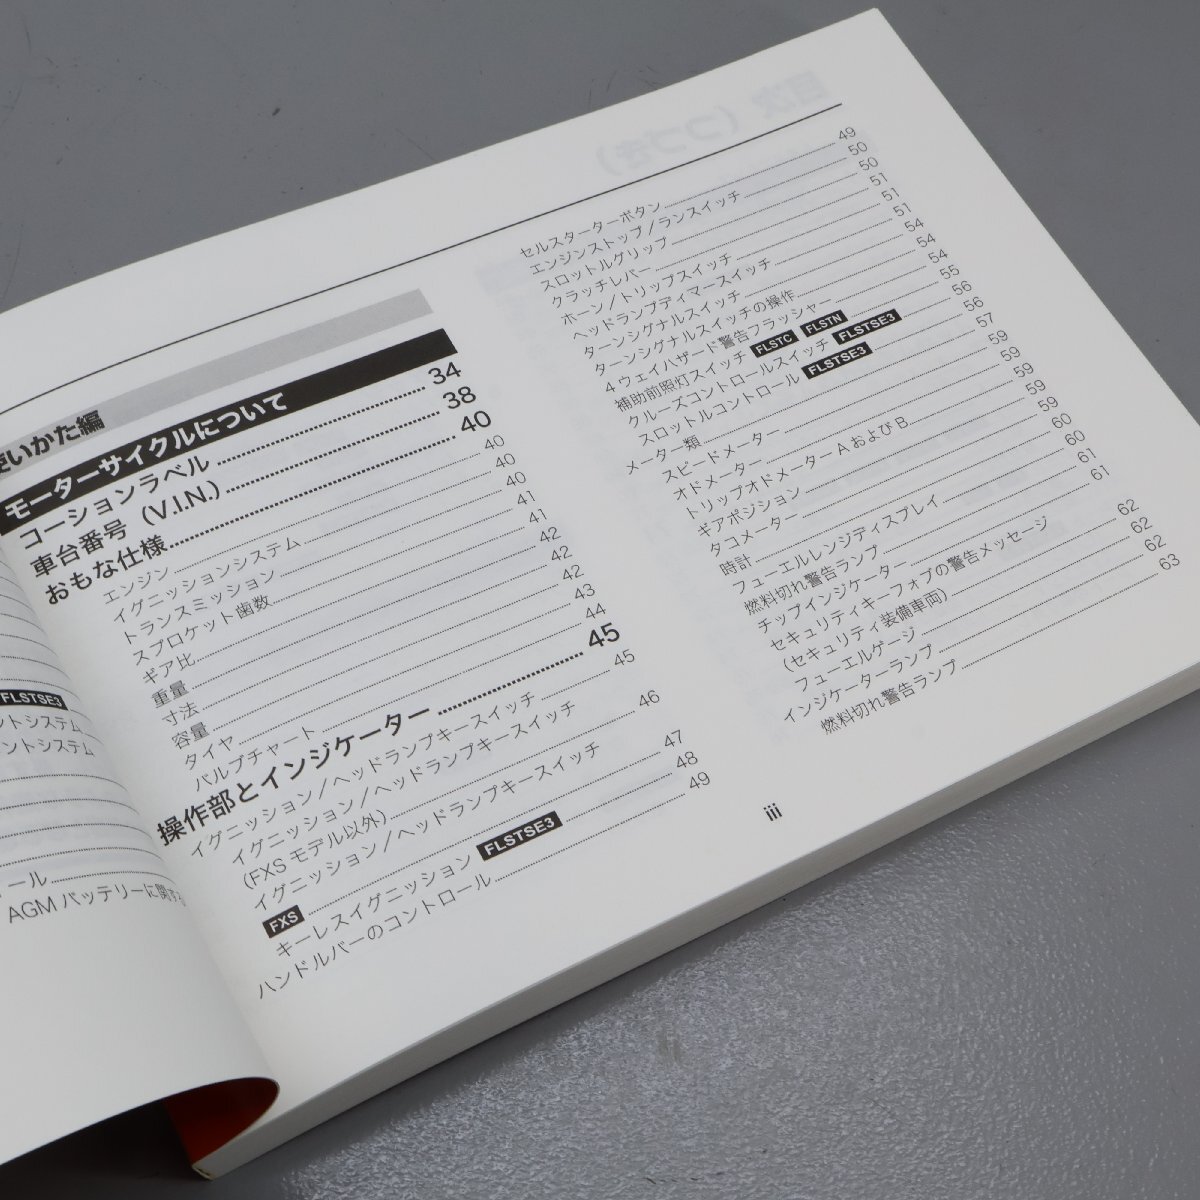 FLSTSE3
ントシステム
ントシステム
ール
AGMバッテリーに関する
使いかた編
モーターサイクルについて
コーションラベル 34
車台番号（V.I.N.） 38
おもな仕様 40
エンジン 40
イグニッションシステム 40
トランスミッション 40
スプロケット歯数 41
ギア比 41
重量 42
寸法 42
容量 42
タイヤ 43
バルブチャート 44
操作部とインジケーター 45
イグニッション／ヘッドランプキースイッチ 45
イグニッション／ヘッドランプキースイッチ
（FXSモデル以外） 46
イグニッション／ヘッドランプキースイッチ
FXS 47
キーレスイグニッション FLSTSE3 48
ハンドルバーのコントロール 49
セルスターターボタン 49
エンジンストップ／ランスイッチ 50
スロットルグリップ 50
クラッチレバー 51
ホーン／トリップスイッチ 51
ヘッドランプディマースイッチ 51
ターンシグナルスイッチ 54
ターンシグナルスイッチの操作 54
4ウェイハザード警告フラッシャー 54
補助前照灯スイッチ FLSTC FLSTN 55
クルーズコントロールスイッチ FLSTSE3 56
スロットルコントロール FLSTSE3 56
メーター類 57
スピードメーター 59
オドメーター 59
トリップオドメーター A および B 59
ギアポジション 59
タコメーター 59
時計 60
フューエルレンジディスプレイ 60
燃料切れ警告ランプ 61
チップインジケーター 61
セキュリティキーフォブの警告メッセージ
（セキュリティ装備車両） 62
フューエルゲージ 62
インジケーターランプ 62
燃料切れ警告ランプ 63
iii